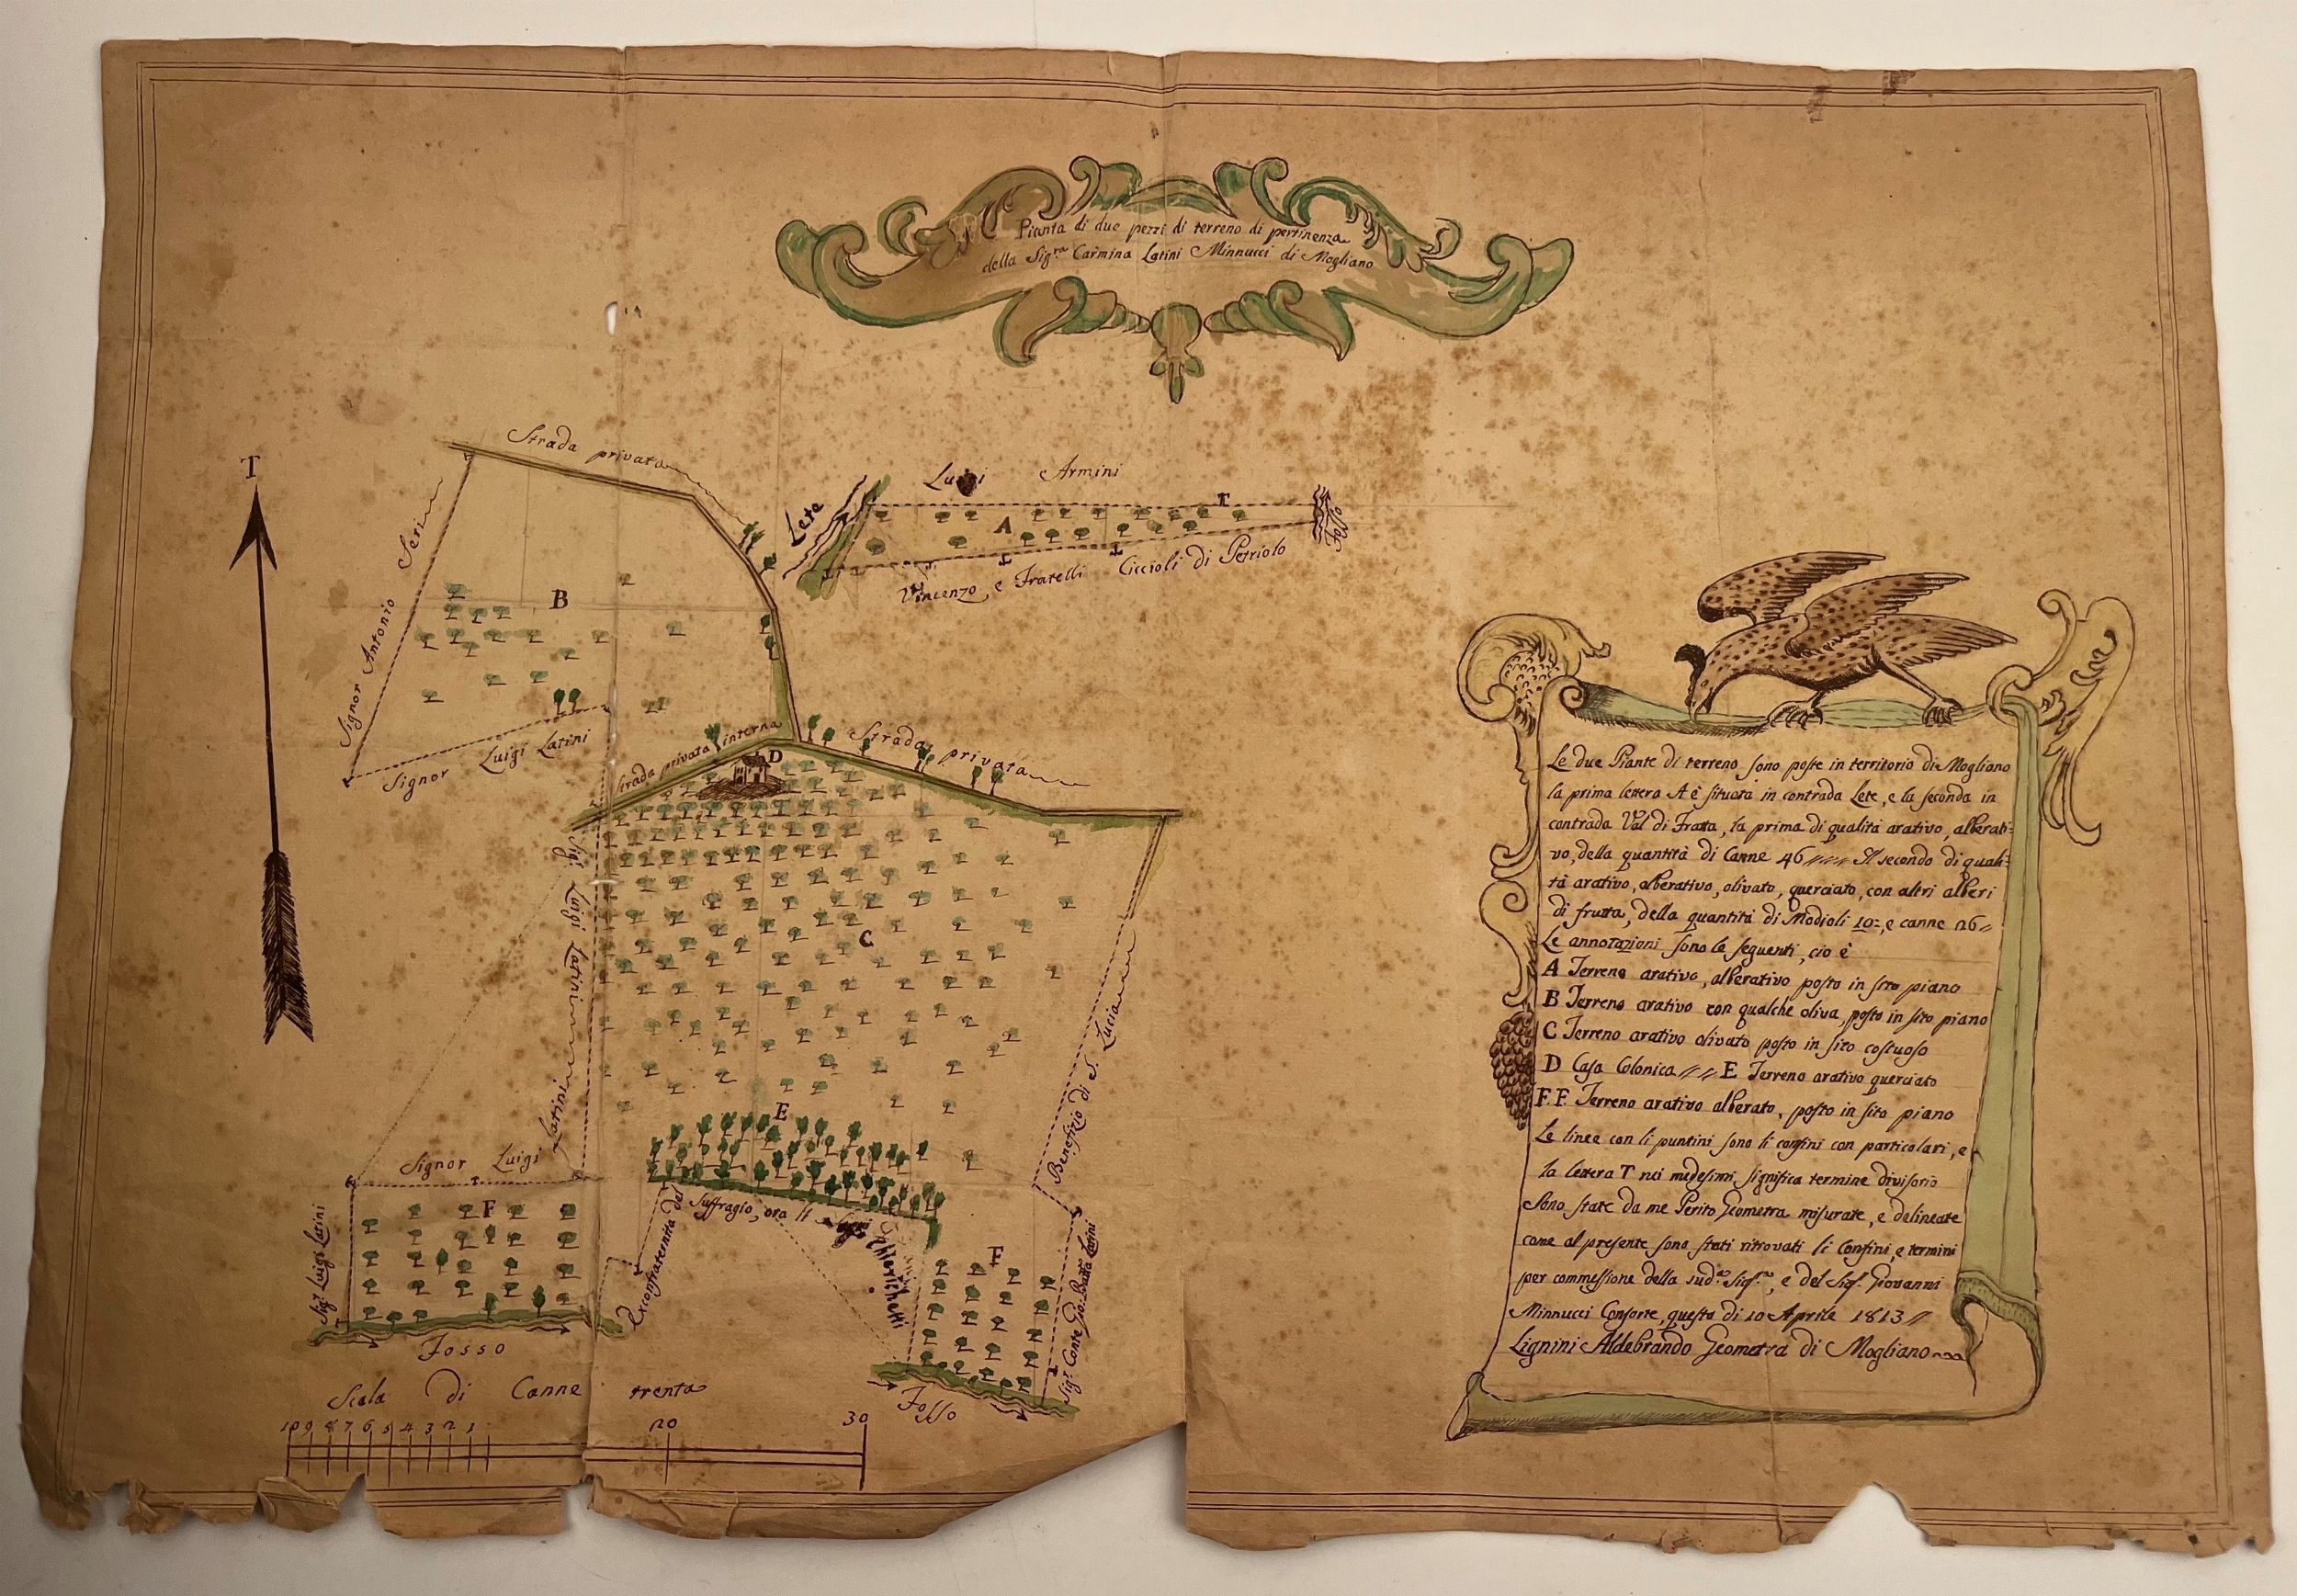 Pianta di due pezzi di terreno di pertinenza
della Sig.ra Carmina Latini Minnucci di Mogliano
T
Strada privata
Signor Antonio Seri
B
Signor Luigi Latini
Lete
Luigi Armini
T
A
Fosso
Vincenzo, e Fratelli Ciccioli di Petriolo
Strada privata interna
D
Strada privata
Sig.r Luigi Latini
C
Benefizio di S. Lucia
E
Signor Luigi Latini
Sig.r Luigi Latini
F
Fosso
Exconfraternita del Suffragio, ora li
Chierichetti
F
Sig.r Conte Gio: Batta Latini
Fosso
Scala di Canne trenta
10 9 8 7 6 5 4 3 2 1 20 30
Le due Piante di terreno sono poste in territorio di Mogliano
la prima lettera A è situata in contrada Lete, e la seconda in
contrada Val di Fratta, la prima di qualità arativo, alberati=
vo, della quantità di Canne 46 Il secondo di quali=
tà arativo, alberativo, olivato, querciato, con altri alberi
di frutta, della quantità di Modioli 10=, e canne 26
Le annotazioni sono le seguenti, cio è
A Terreno arativo, alberativo posto in sito piano
B Terreno arativo con qualche oliva, posto in sito piano
C Terreno arativo olivato posto in sito costuoso
D Casa Colonica E Terreno arativo querciato
F. F. Terreno arativo alberato, posto in sito piano
Le linee con li puntini sono li confini con particolari, e
la lettera T nei medesimi significa termine divisorio
Sono state da me Perito Geometra misurate, e delineate
come al presente sono stati ritrovati li Confini, e termini
per commessione della sud.a Sig.ra, e del Sig.r Giovanni
Minnucci Consorte, questo di 10 Aprile 1813
Lignini Aldebrando Geometra di Mogliano